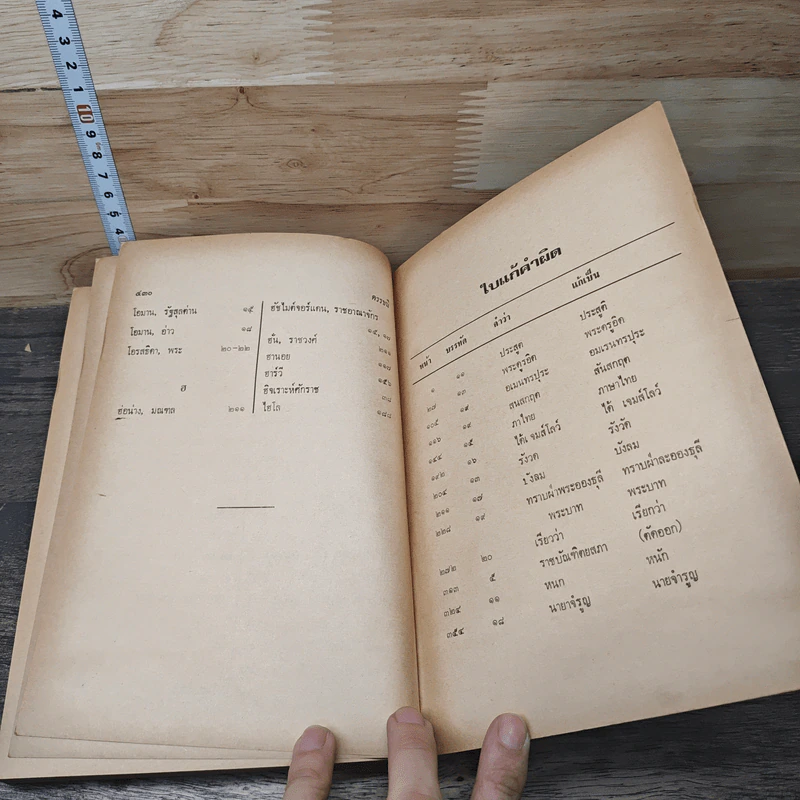 4
3
2
1
10
9
8
7
6
5
4
๔๓๐
ดรรชนี
โอมาน, รัฐสุลต่าน ๑๕
โอมาน, อ่าว ๑๘
โอรสธิดา, พระ ๒๐-๒๒
ฮ
ฮ่อน่าง, มณฑล ๒๑๑
ฮัชไมต์จอร์แดน, ราชอาณาจักร
ฮั่น, ราชวงศ์ ๒๑๑
ฮานอย ๑๑๗
ฮาร์วี ๑๕๖
ฮิจเราะห์ศักราช ๓๘
ไฮโล
ใบแก้คำผิด
หน้า บรรทัด คำว่า แก้เป็น
๑ ๑๑ ประสูต ประสูติ
๒๗ ๑๓ พระดูรอิด พระครูอิด
๑๐๕ ๑๙ อเมนทรปุระ อมเรนทรปุระ
๑๑๖ ๑๙ สนสกฤต สันสกฤต
๑๔๔ ๑๕ ภาไทย ภาษาไทย
๑๙๒ ๑๖ ได้เจมส์โลว์ ได้ เจมส์โลว์
๒๐๔ ๑๓ รังวด รังวัด
๒๑๑ ๑๗ บังลม บังลม
๒๒๘ ๑๙ ทราบฝ่าพระอองธุลี ทราบฝ่าละอองธุลี
พระบาท พระบาท
๒๗๒ ๒๐ เรียวว่า เรียกว่า
๓๑๓ ๕ ราชบัณฑิตยสภา (ตัดออก)
๓๒๙ ๑๑ หนก หนัก
๓๕๔ ๑๘ นายาจำรูญ นายจำรูญ